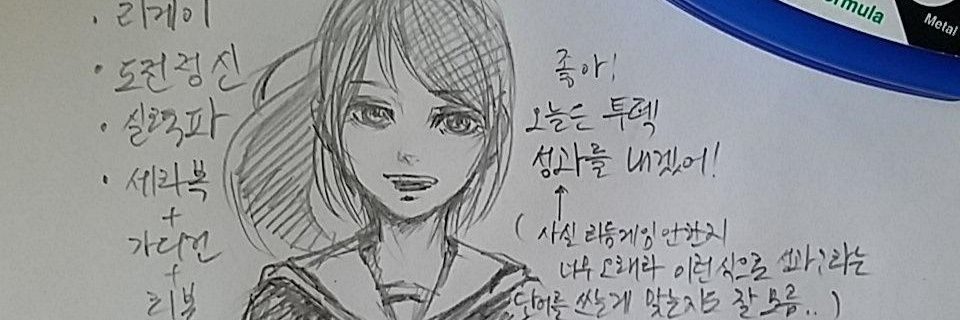 · 리케이
· 도전정신
· 실력파
· 세라복
+
가디건
+
리본
좋아!
오늘은 투덱
성과를 내겠어!
(사실 리듬게임 안한지
너무 오래라 이런식으로 성과?라는
단어를 쓰는게 맞는지도 잘 모름..)
ormula
Metal